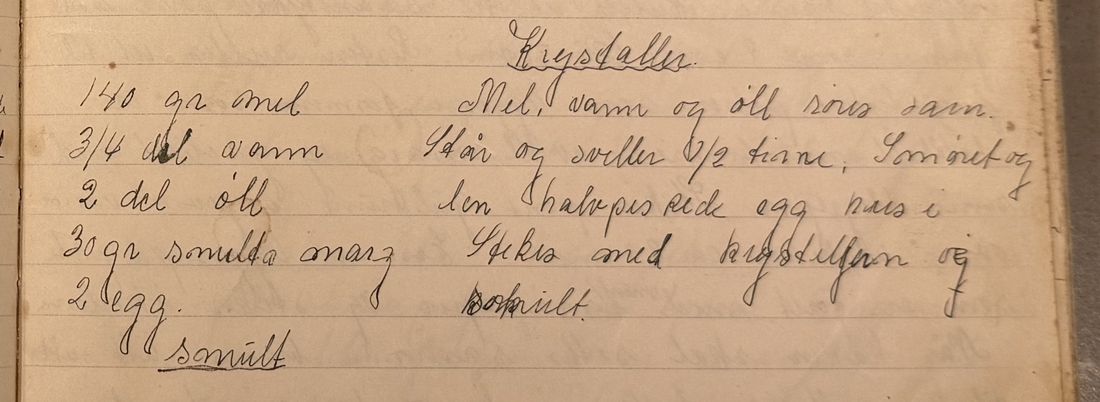 Krystaller.
140 gr mel
3/4 del vann
2 del öll
30 gr smulta marg
2 egg.
smult
Mel, vann og öll röres sam.
Står og sveller 1/2 time. Smöret og
len halvpiskede egg röres i
Stekes med krystelljern og